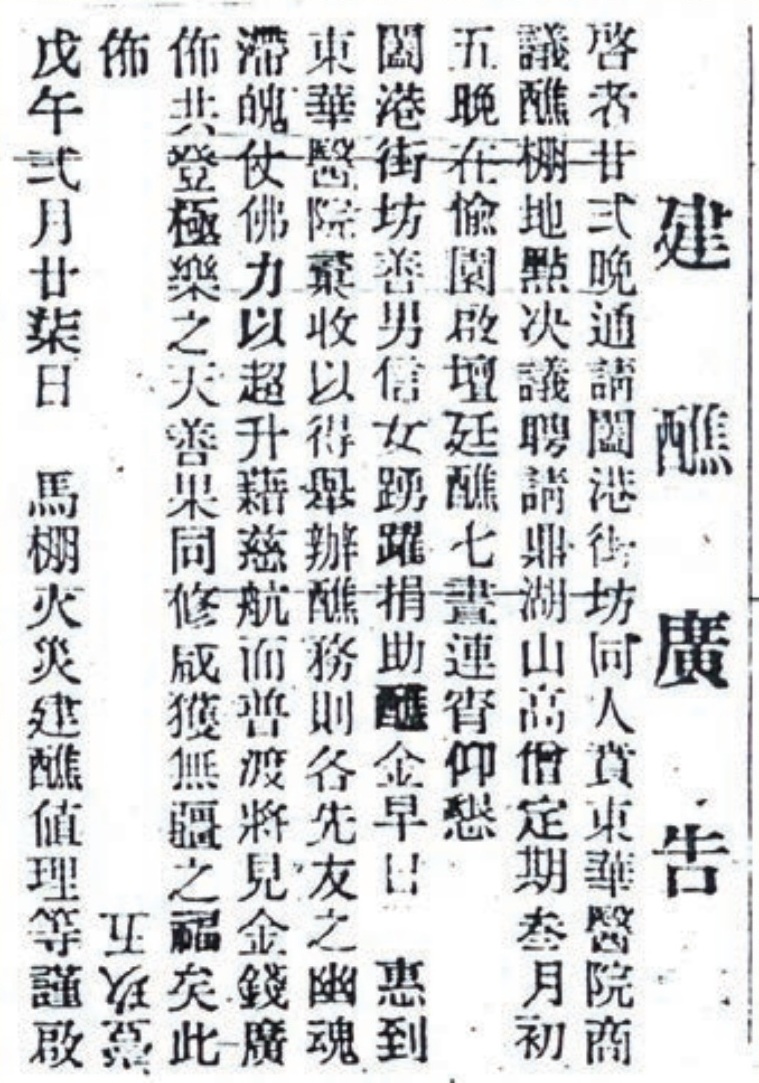 建醮廣告
啓者廿弍晚通請闔港街坊同人賁東華醫院商
議醮棚地點决議聘請鼎湖山高僧定期叁月初
五晚在愉園啟壇廷醮七晝連宵仰懇
闔港街坊善男信女踴躍捐助醮金早日 惠到
東華醫院彙收以得舉辦醮務則各先友之幽魂
滯魄仗佛力以超升藉慈航而普渡將見金錢廣
佈共登極樂之天善果同修咸獲無疆之福矣此
佈 五玖壹
戊午弍月廿柒日 馬棚火災建醮値理等謹啟